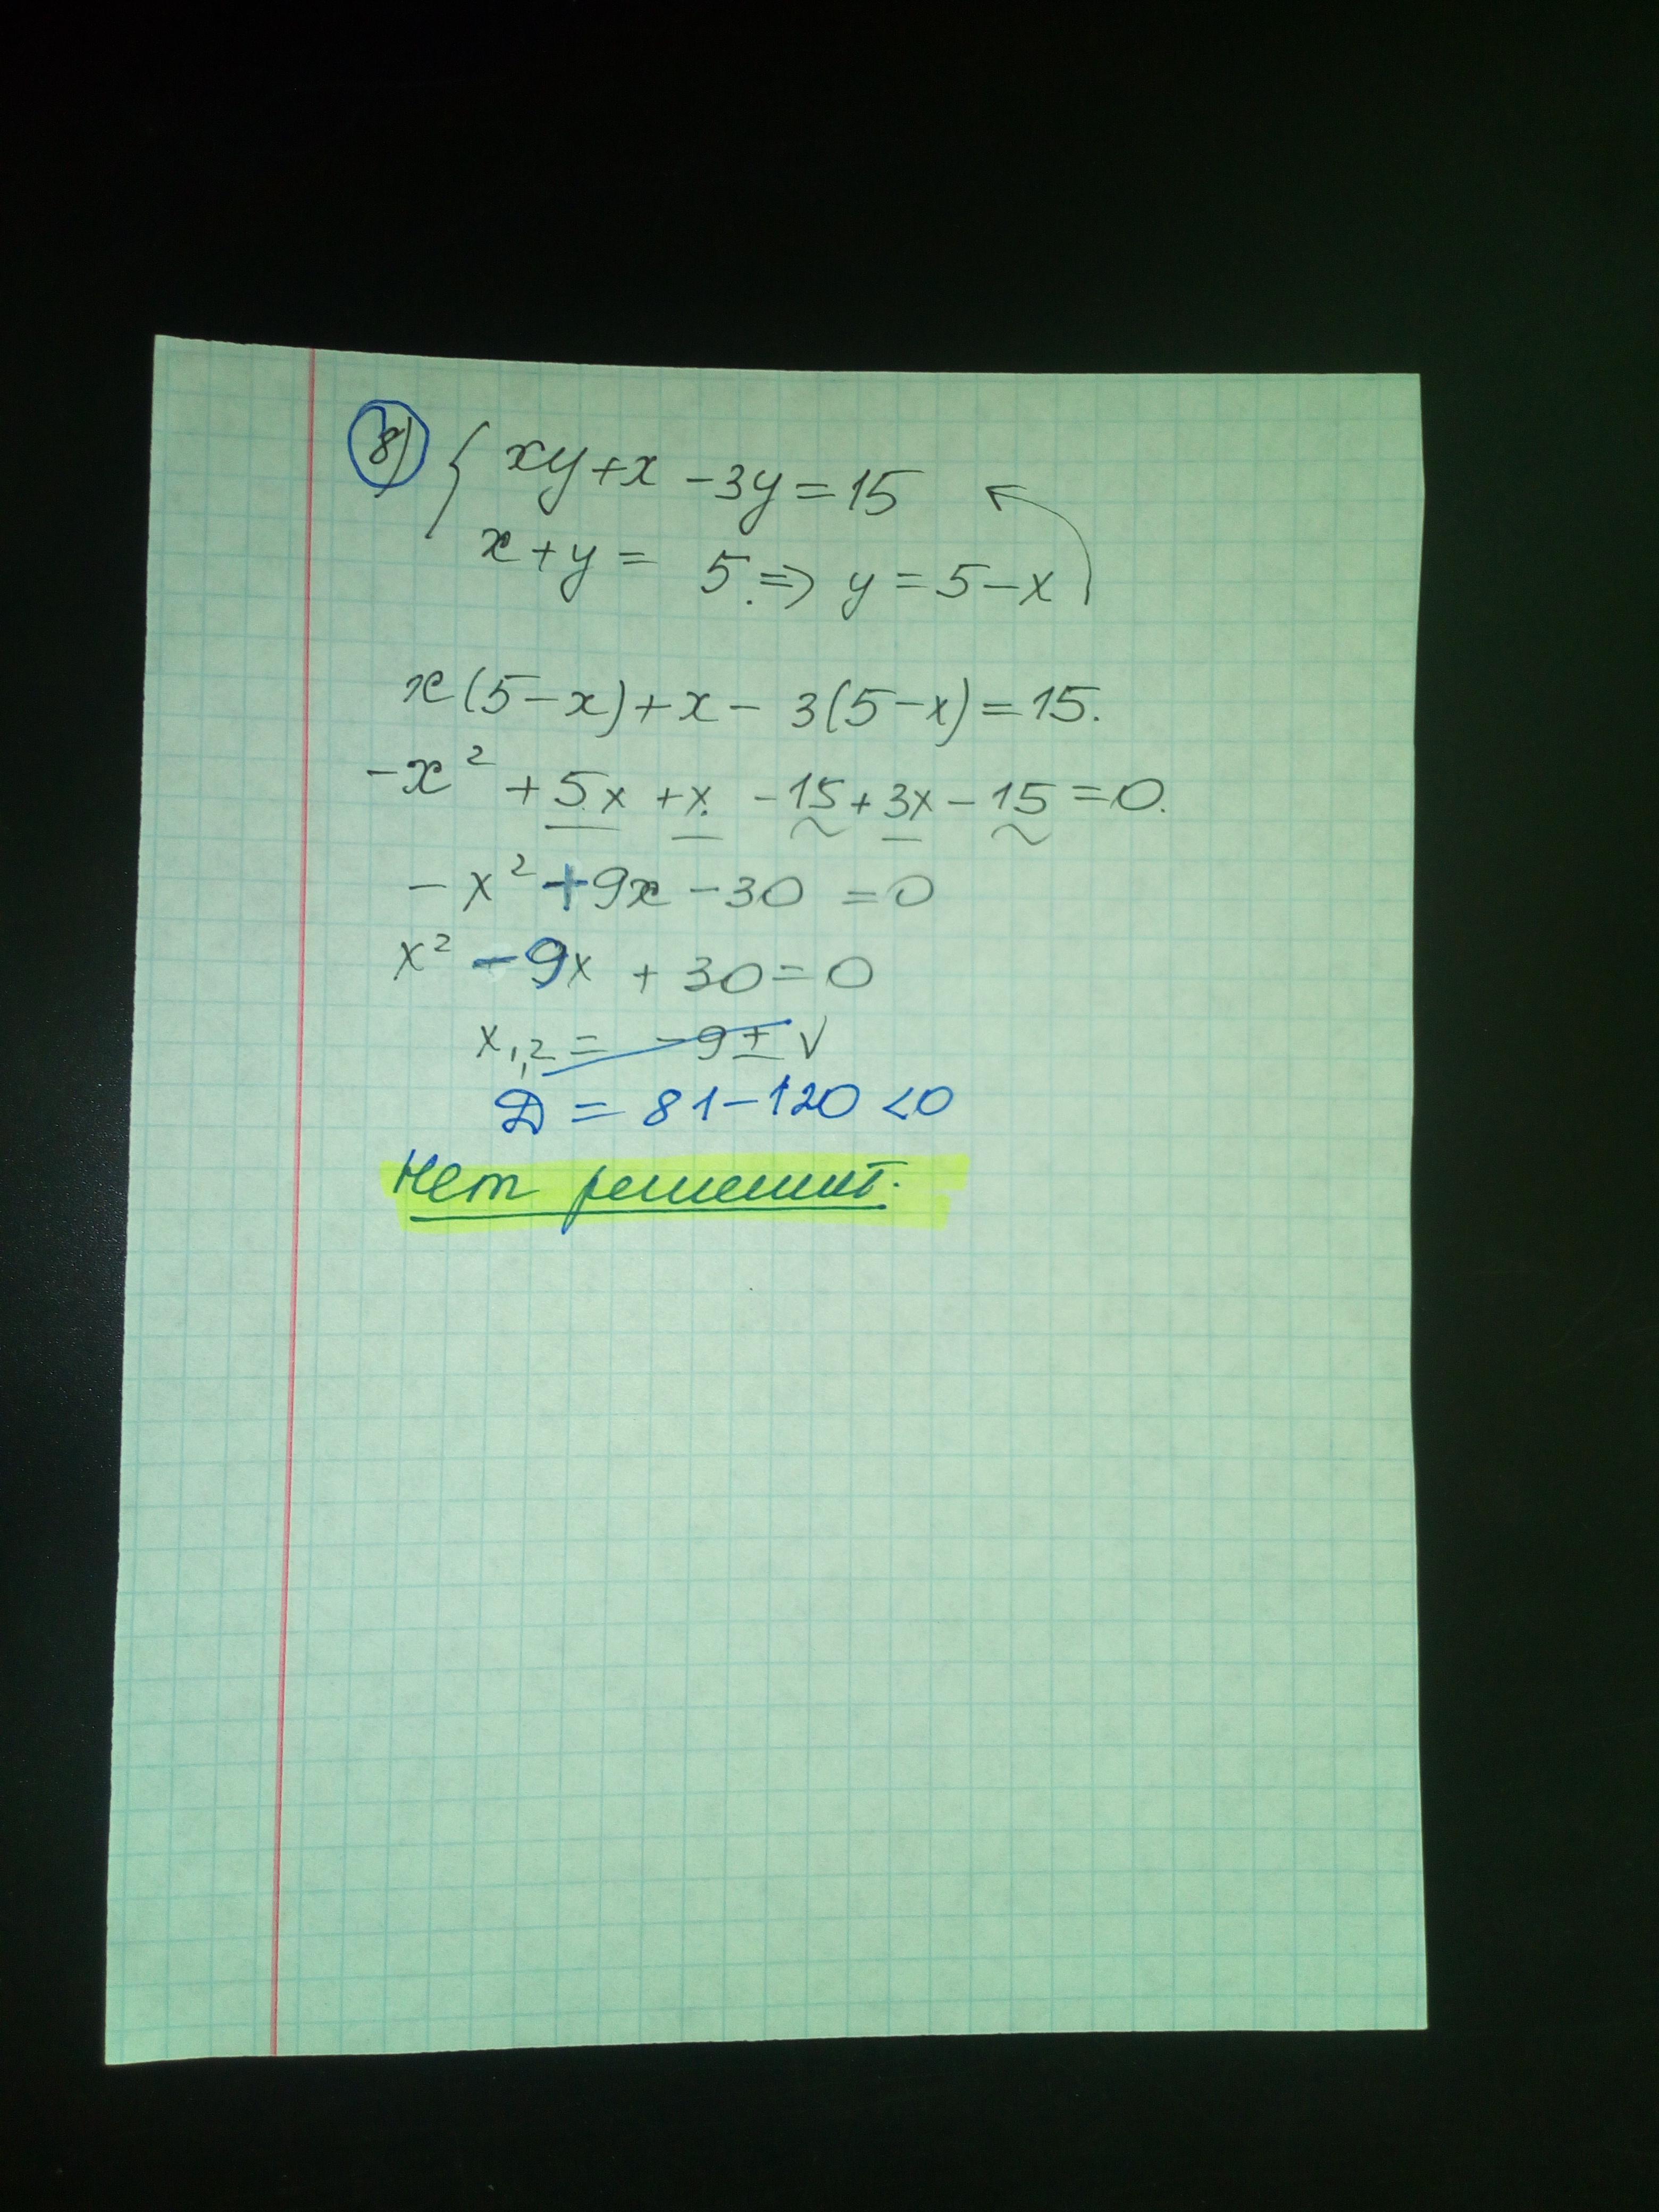 8) { xy + x - 3y = 15
x + y = 5. => y = 5 - x
x(5 - x) + x - 3(5 - x) = 15.
-x² + 5x + x. - 15 + 3x - 15 = 0.
- x² + 9x - 30 = 0
x² - 9x + 30 = 0
x₁,₂ = -9 ± √
D = 81 - 120 < 0
Нет решений.